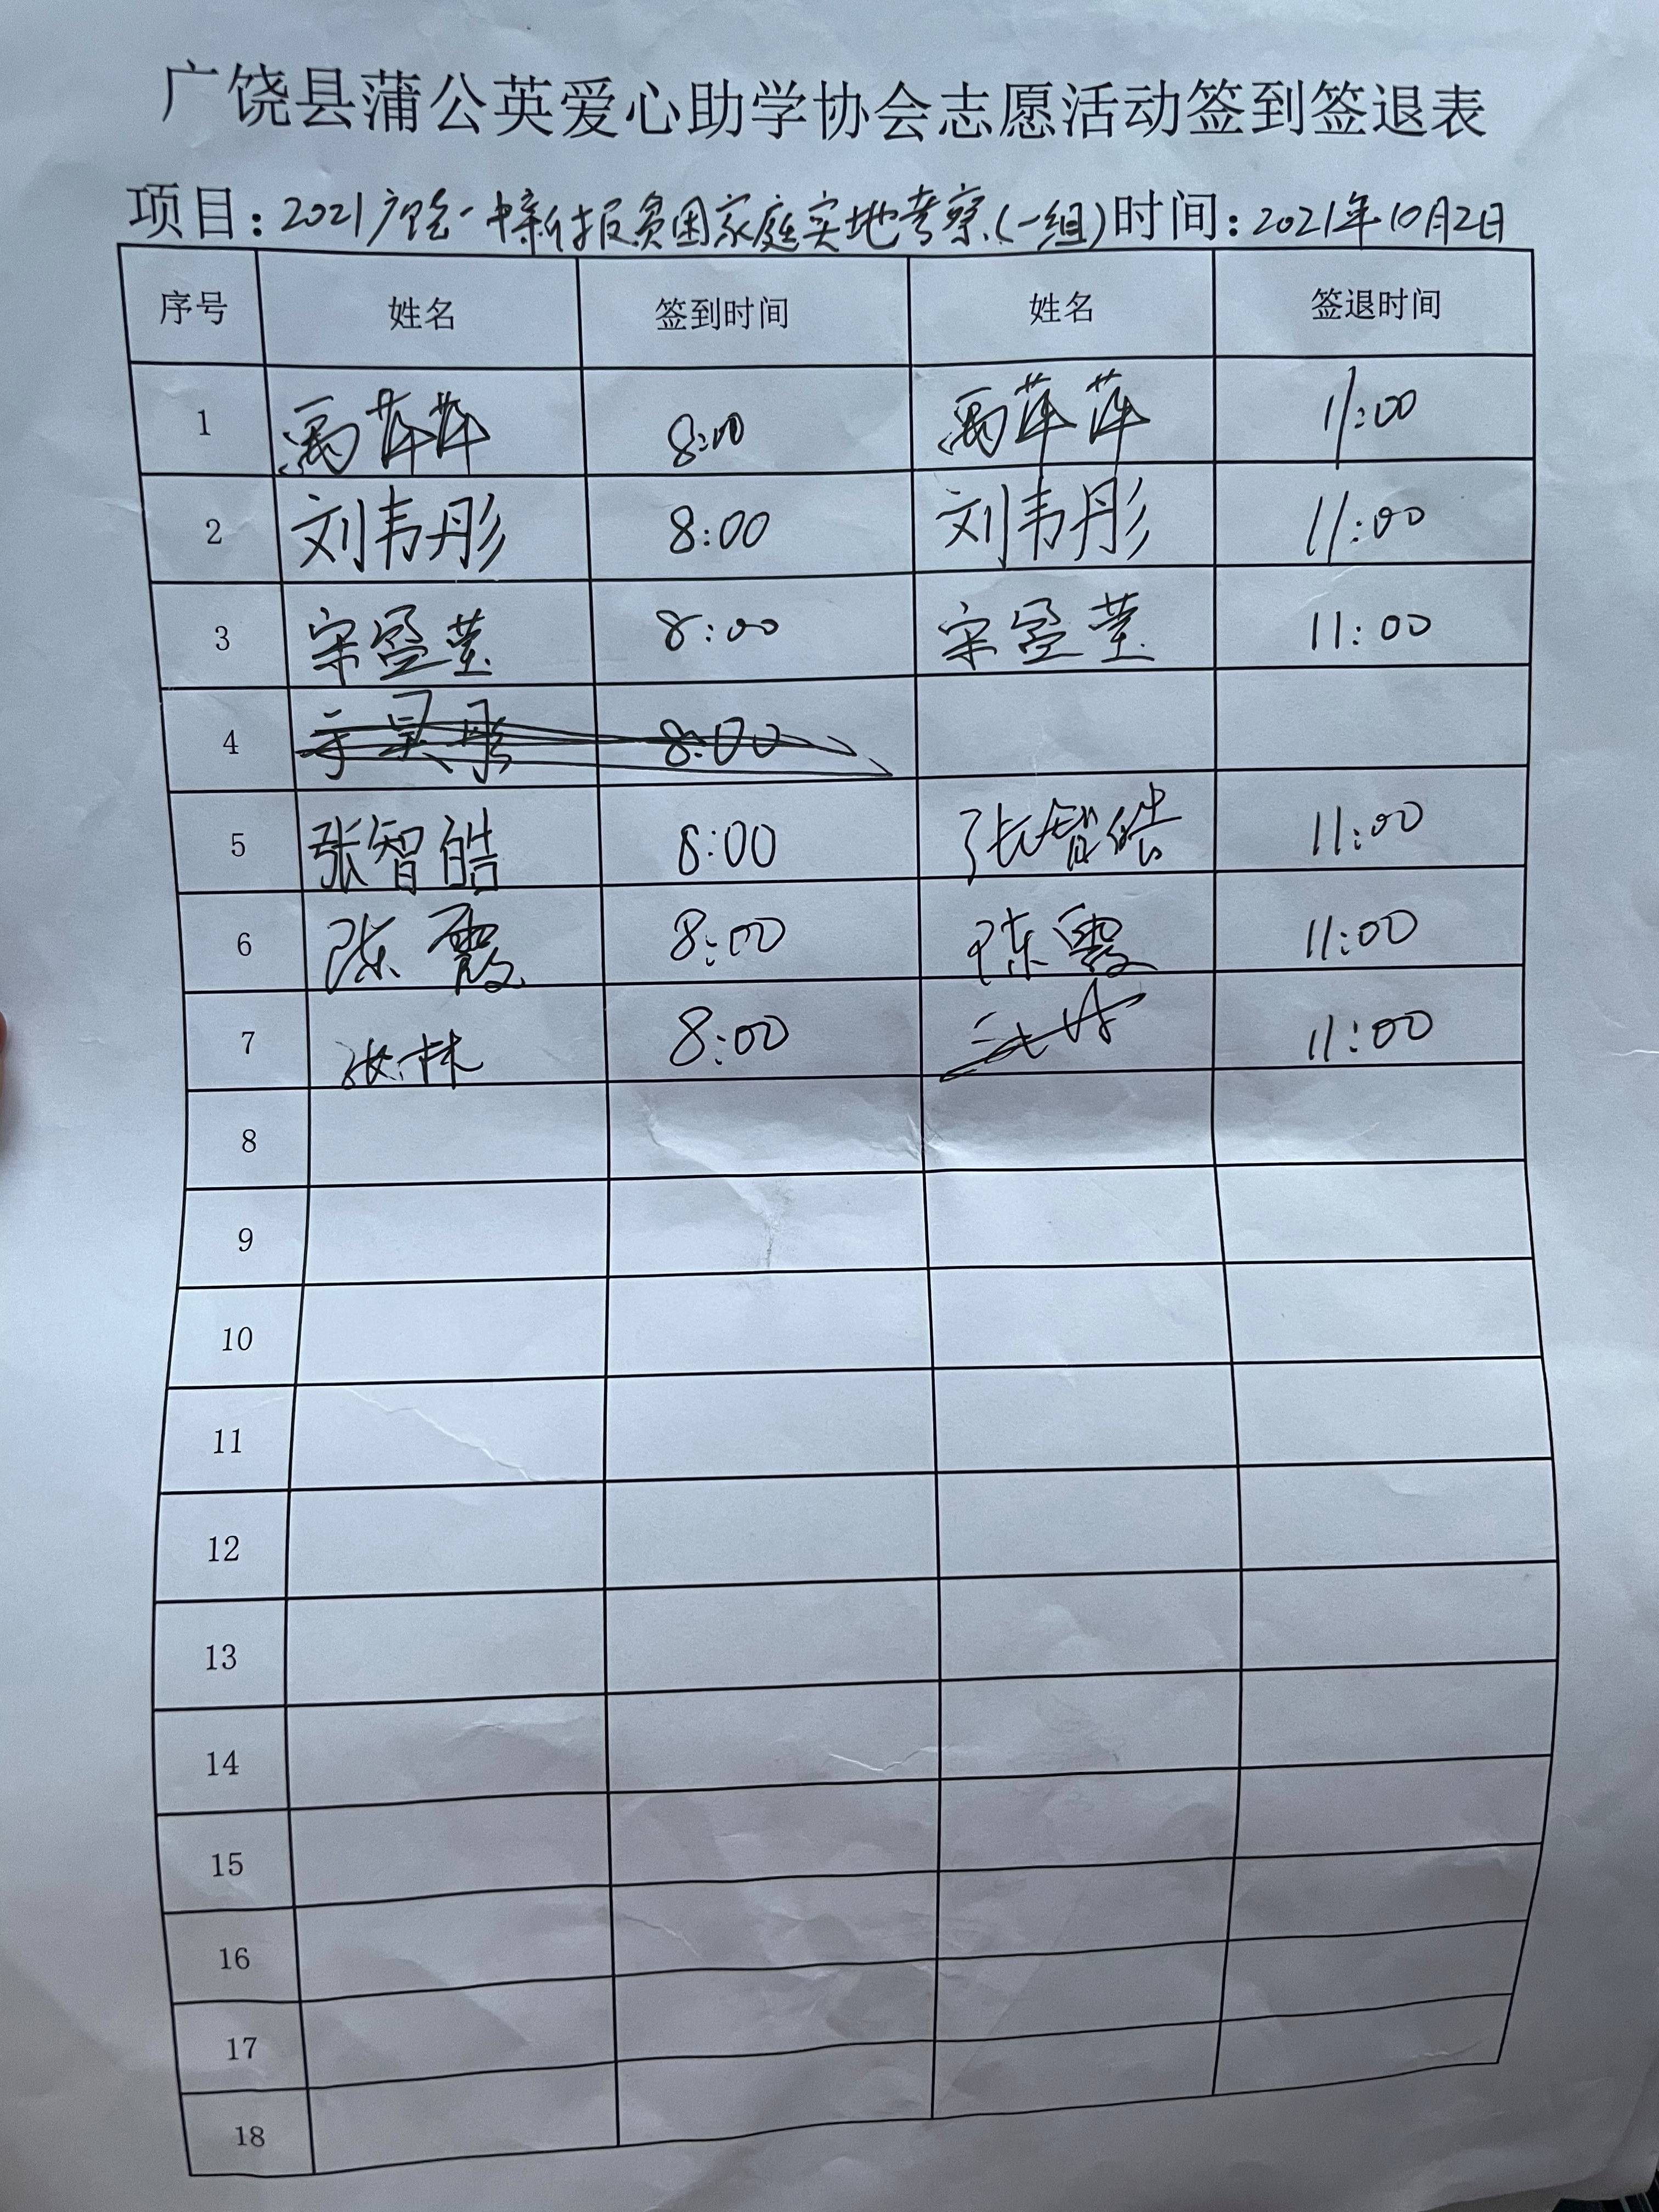 广饶县蒲公英爱心助学协会志愿活动签到签退表
项目：2021广饶一中新报贫困家庭实地考察（一组）时间：2021年10月2日
序号 姓名 签到时间 姓名 签退时间
1 萍萍 8:00 萍萍 11:00
2 刘韦彤 8:00 刘韦彤 11:00
3 宋盈莹 8:00 宋盈莹 11:00
4 8:00
5 张智皓 8:00 张智皓 11:00
6 陈霞 8:00 陈霞 11:00
7 8:00 11:00
8
9
10
11
12
13
14
15
16
17
18